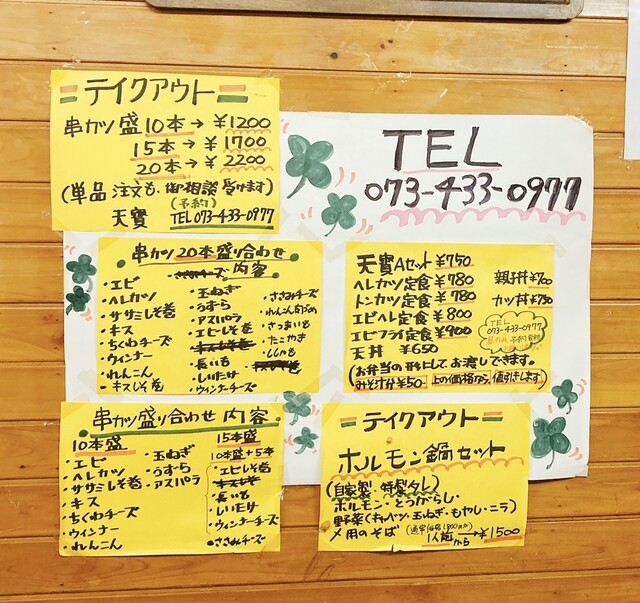 テイクアウト
串カツ盛 10本→¥1200
15本→¥1700
20本→¥2200
(単品注文も、御相談受けます)
(予約)
天寶 TEL073-433-0977
TEL
073-433-0977
串カツ20本盛り合わせ
内容
・エビ
・ヘレカツ
・ササミしそ巻
・キス
・ちくわチーズ
・ウィンナー
・れんこん
・キスしそ巻
・玉ねぎ
・うずら
・アスパラ
・エビしそ巻
・長いも
・しいたけ
・ウィンナーチーズ
・ささみチーズ
・さつまいも
・たこやき
・ししゃも
天寶Aセット ¥750
ヘレカツ定食 ¥780
トンカツ定食 ¥780
エビヘレ定食 ¥800
エビフライ定食 ¥900
天丼 ¥650
親子丼 ¥700
カツ丼 ¥750
TEL
073-433-0977
(お弁当の形にして、お渡しできます。
みそ汁分¥50 上の価格から、値引きします)
串カツ盛り合わせ内容
10本盛
・エビ
・ヘレカツ
・ササミしそ巻
・キス
・ちくわチーズ
・ウィンナー
・れんこん
・玉ねぎ
・うずら
・アスパラ
15本盛
10本盛+5本
・エビしそ巻
・長いも
・しいたけ
・ウィンナーチーズ
・ささみチーズ
テイクアウト
ホルモン鍋セット
(自家製、特製タレ)
ホルモン・とうがらし・
野菜(キャベツ・玉ねぎ・もやし・ニラ)
〆用のそば
1人前から→¥1500